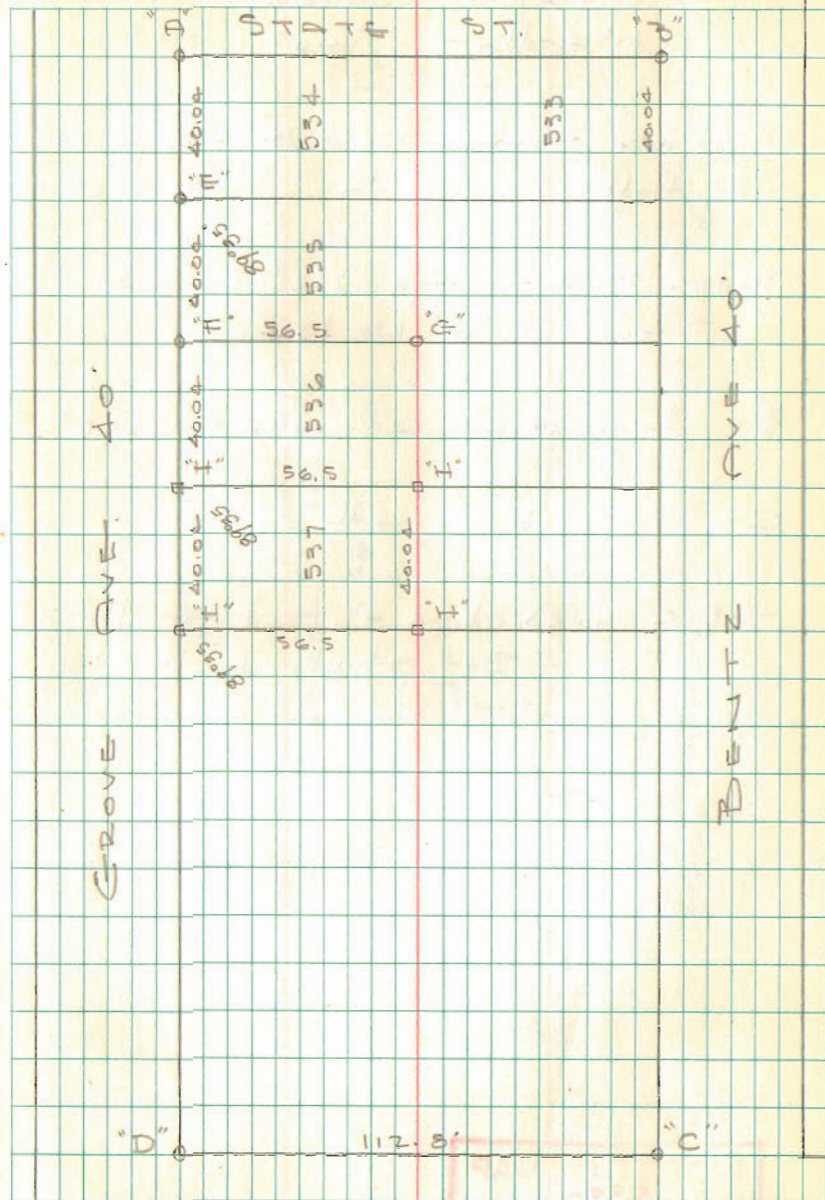 STATE ST.
"D"
"J"
40.04
534
533
40.04
"E"
40.04
89°35
535
"F"
56.5
"G"
40.04
536
"I"
56.5
"I"
89°35
40.04
537
40.04
"I"
56.5
"I"
89°35
GROVE AVE. 40'
BENTZ AVE 40'
"D"
112.8'
"C"